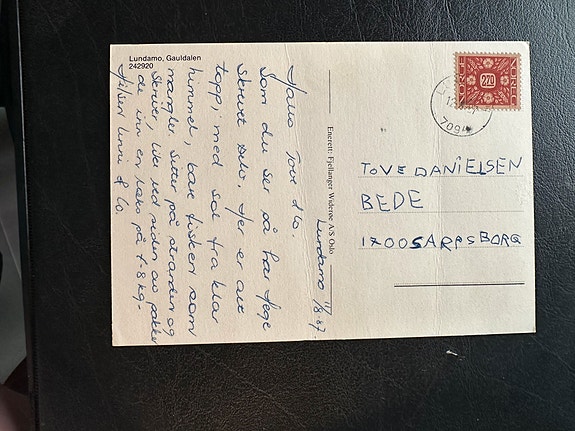 Lundamo, Gauldalen
242920
Lundamo 11/8-87.
Hallo Tove & Co.
Som du ser så har Hege
skrevet selv. Her er alt
topp, med sol fra klar
himmel, bare fisken som
mangler. Sitter på stranden og
skriver, like ved siden av pakker
de inn en laks på 7-8 kg-
Hilsen Unni & Co.
Enerett: Fjellanger Widerøe A/S Oslo
NOREG
270
7094
TOVE DANIELSEN
BEDE
1700 SARPSBORG